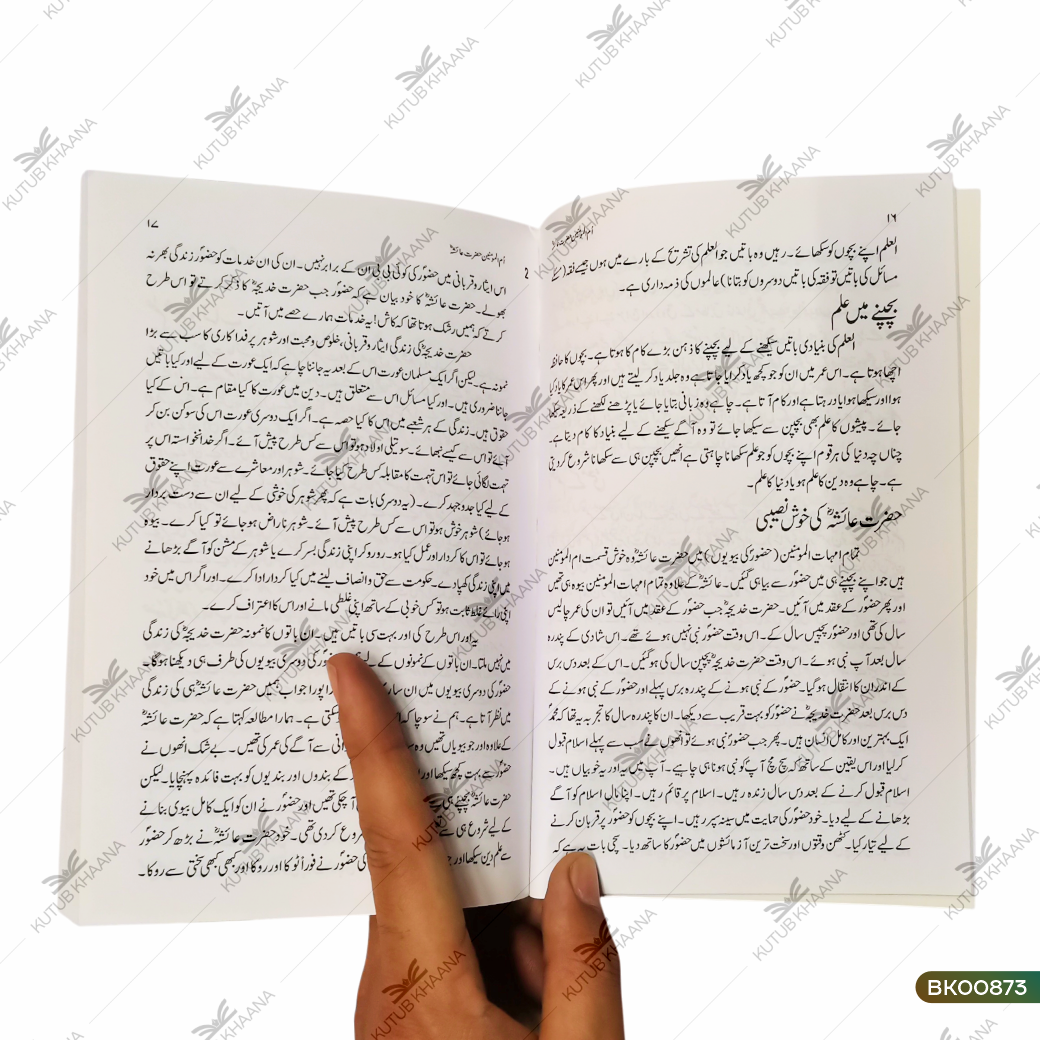 ۱۶
اُم المومنین حضرت عائشہؓ
العلم اپنے بچوں کو سکھائے۔ رہیں وہ باتیں جو العلم کی تشریح کے بارے میں ہوں جیسے فقہ (کے
مسائل کی باتیں تو فقہ کی باتیں دوسروں کو بتانا) عالموں کی ذمہ داری ہے۔
بچپنے میں علم
العلم کی بنیادی باتیں سیکھنے کے لیے بچپنے کا ذہن بڑے کام کا ہوتا ہے۔ بچوں کا حافظہ
اچھا ہوتا ہے۔ اس عمر میں ان کو جو کچھ یاد کرایا جاتا ہے وہ جلد یاد کر لیتے ہیں اور پھر اس عمر کا یاد کیا
ہوا اور سیکھا ہوا یاد رہتا ہے اور کام آتا ہے۔ چاہے وہ زبانی بتایا جائے یا پڑھنے لکھنے کے ذریعہ سیکھا
جائے۔ پیشوں کا علم بھی بچپن سے سیکھا جائے تو وہ آگے سیکھنے کے لیے بنیاد کا کام دیتا ہے۔
چناں چہ دنیا کی ہر قوم اپنے بچوں کو جو علم سکھانا چاہتی ہے انھیں بچپن ہی سے سکھانا شروع کر دیتی
ہے۔ چاہے وہ دین کا علم ہو یا دنیا کا علم۔
حضرت عائشہؓ کی خوش نصیبی
تمام امہات المومنین (حضورؐ کی بیویوں) میں حضرت عائشہؓ وہ خوش قسمت ام المومنین
ہیں جو اپنے بچپنے ہی میں حضورؐ سے بیاہی گئیں۔ عائشہؓ کے علاوہ تمام امہات المومنین بیوہ ہی تھیں
اور پھر حضورؐ کے عقد میں آئیں۔ حضرت خدیجہؓ جب حضورؐ کے عقد میں آئیں تو ان کی عمر چالیس
سال کی تھی اور حضورؐ پچیس سال کے۔ اس وقت حضورؐ نبی نہیں ہوئے تھے۔ اس شادی کے پندرہ
سال بعد آپ نبی ہوئے۔ اس وقت حضرت خدیجہؓ پچپن سال کی ہو گئیں۔ اس کے بعد دس برس
کے اندر ان کا انتقال ہو گیا۔ حضورؐ کے نبی ہونے کے پندرہ برس پہلے اور حضورؐ کے نبی ہونے کے
دس برس بعد حضرت خدیجہؓ نے حضورؐ کو بہت قریب سے دیکھا۔ ان کا پندرہ سال کا تجربہ یہ تھا کہ محمدؐ
ایک بہترین اور کامل انسان ہیں۔ پھر جب حضورؐ نبی ہوئے تو انھوں نے سب سے پہلے اسلام قبول
کر لیا اور اس یقین کے ساتھ کہ سچ مچ آپؐ کو نبی ہونا ہی چاہیے۔ آپ میں یہ اور یہ خوبیاں ہیں۔
اسلام قبول کرنے کے بعد دس سال زندہ رہیں۔ اسلام پر قائم رہیں۔ اپنا مال اسلام کو آگے
بڑھانے کے لیے دیا۔ خود حضورؐ کی حمایت میں سینہ سپر رہیں۔ اپنے بچوں کو حضورؐ پر قربان کرنے
کے لیے تیار کیا۔ کٹھن وقتوں اور سخت ترین آزمائشوں میں حضورؐ کا ساتھ دیا۔ سچی بات یہ ہے کہ
۱۷
اُم المومنین حضرت عائشہؓ
2
اس ایثار و قربانی میں حضورؐ کی کوئی بی بی ان کے برابر نہیں۔ ان کی ان خدمات کو حضورؐ زندگی بھر نہ
بھولے۔ حضرت عائشہؓ کا خود بیان ہے کہ حضورؐ جب حضرت خدیجہؓ کا ذکر کرتے تو اس طرح
کرتے کہ ہمیں رشک ہوتا تھا کہ کاش! یہ خدمات ہمارے حصے میں آتیں۔
حضرت خدیجہؓ کی زندگی ایثار و قربانی، خلوص و محبت اور شوہر پر فداکاری کا سب سے بڑا
نمونہ ہے۔ لیکن اگر ایک مسلمان عورت اس کے بعد یہ جاننا چاہے کہ ایک عورت کے لیے اور کیا باتیں
جاننا ضروری ہیں۔ اور کیا مسائل اس سے متعلق ہیں۔ دین میں عورت کا کیا مقام ہے۔ اس کے کیا
حقوق ہیں۔ زندگی کے ہر شعبے میں اس کا کیا حصہ ہے۔ اگر ایک دوسری عورت اس کی سوکن بن کر
آئے تو اس سے کیسے نبھائے۔ سوتیلی اولاد ہو تو اس سے کس طرح پیش آئے۔ اگر خدانخواستہ اس پر
تہمت لگائی جائے تو اس تہمت کا مقابلہ کس طرح کیا جائے۔ شوہر اور معاشرے سے عورت اپنے حقوق
کے لیے کیا جدوجہد کرے۔ (یہ دوسری بات ہے کہ پھر شوہر کی خوشی کے لیے ان سے دست بردار
ہو جائے) شوہر خوش ہو تو اس سے کس طرح پیش آئے۔ شوہر ناراض ہو جائے تو کیا کرے۔ بیوہ
ہو جائے تو اس کا کردار اور عمل کیا ہو۔ رو رو کر اپنی زندگی بسر کرے یا شوہر کے مشن کو آگے بڑھانے
میں اپنی زندگی کھپا دے۔ حکومت سے حق و انصاف لینے میں کیا کردار ادا کرے۔ اور اگر اس میں خود
اپنی رائے غلط ثابت ہو تو کس خوبی کے ساتھ اپنی غلطی مانے اور اس کا اعتراف کرے۔
یہ اور اس طرح کی اور بہت سی باتیں ہیں۔ ان باتوں کا نمونہ حضرت خدیجہؓ کی زندگی
میں نہیں ملتا۔ ان باتوں کے نمونوں کے لیے حضورؐ کی دوسری بیویوں کی طرف ہی دیکھنا ہوگا۔
حضورؐ کی دوسری بیویوں میں ان پورا جواب ہمیں حضرت عائشہؓ ہی کی زندگی
میں نظر آتا ہے۔ ہم نے سوچا کہ سکتی ہے۔ ہمارا مطالعہ کہتا ہے کہ حضرت عائشہؓ
کے علاوہ اور جو بیویاں تھیں وہ سے آگے کی عمر کی تھیں۔ بے شک انھوں نے
حضورؐ سے بہت کچھ سیکھا اور کے بندوں اور بندیوں کو بہت فائدہ پہنچایا۔ لیکن
حضرت عائشہؓ بچپنے ہی آ چکی تھیں اور حضورؐ نے ان کو ایک کامل بیوی بنانے
کے لیے شروع ہی سے شروع کر دی تھی۔ خود حضرت عائشہؓ نے بڑھ کر حضورؐ
سے علم دین سیکھا اور حضورؐ نے فوراً ٹوکا اور روکا اور کبھی کبھی سختی سے روکا۔
KUTUB KHAANA
BK00873